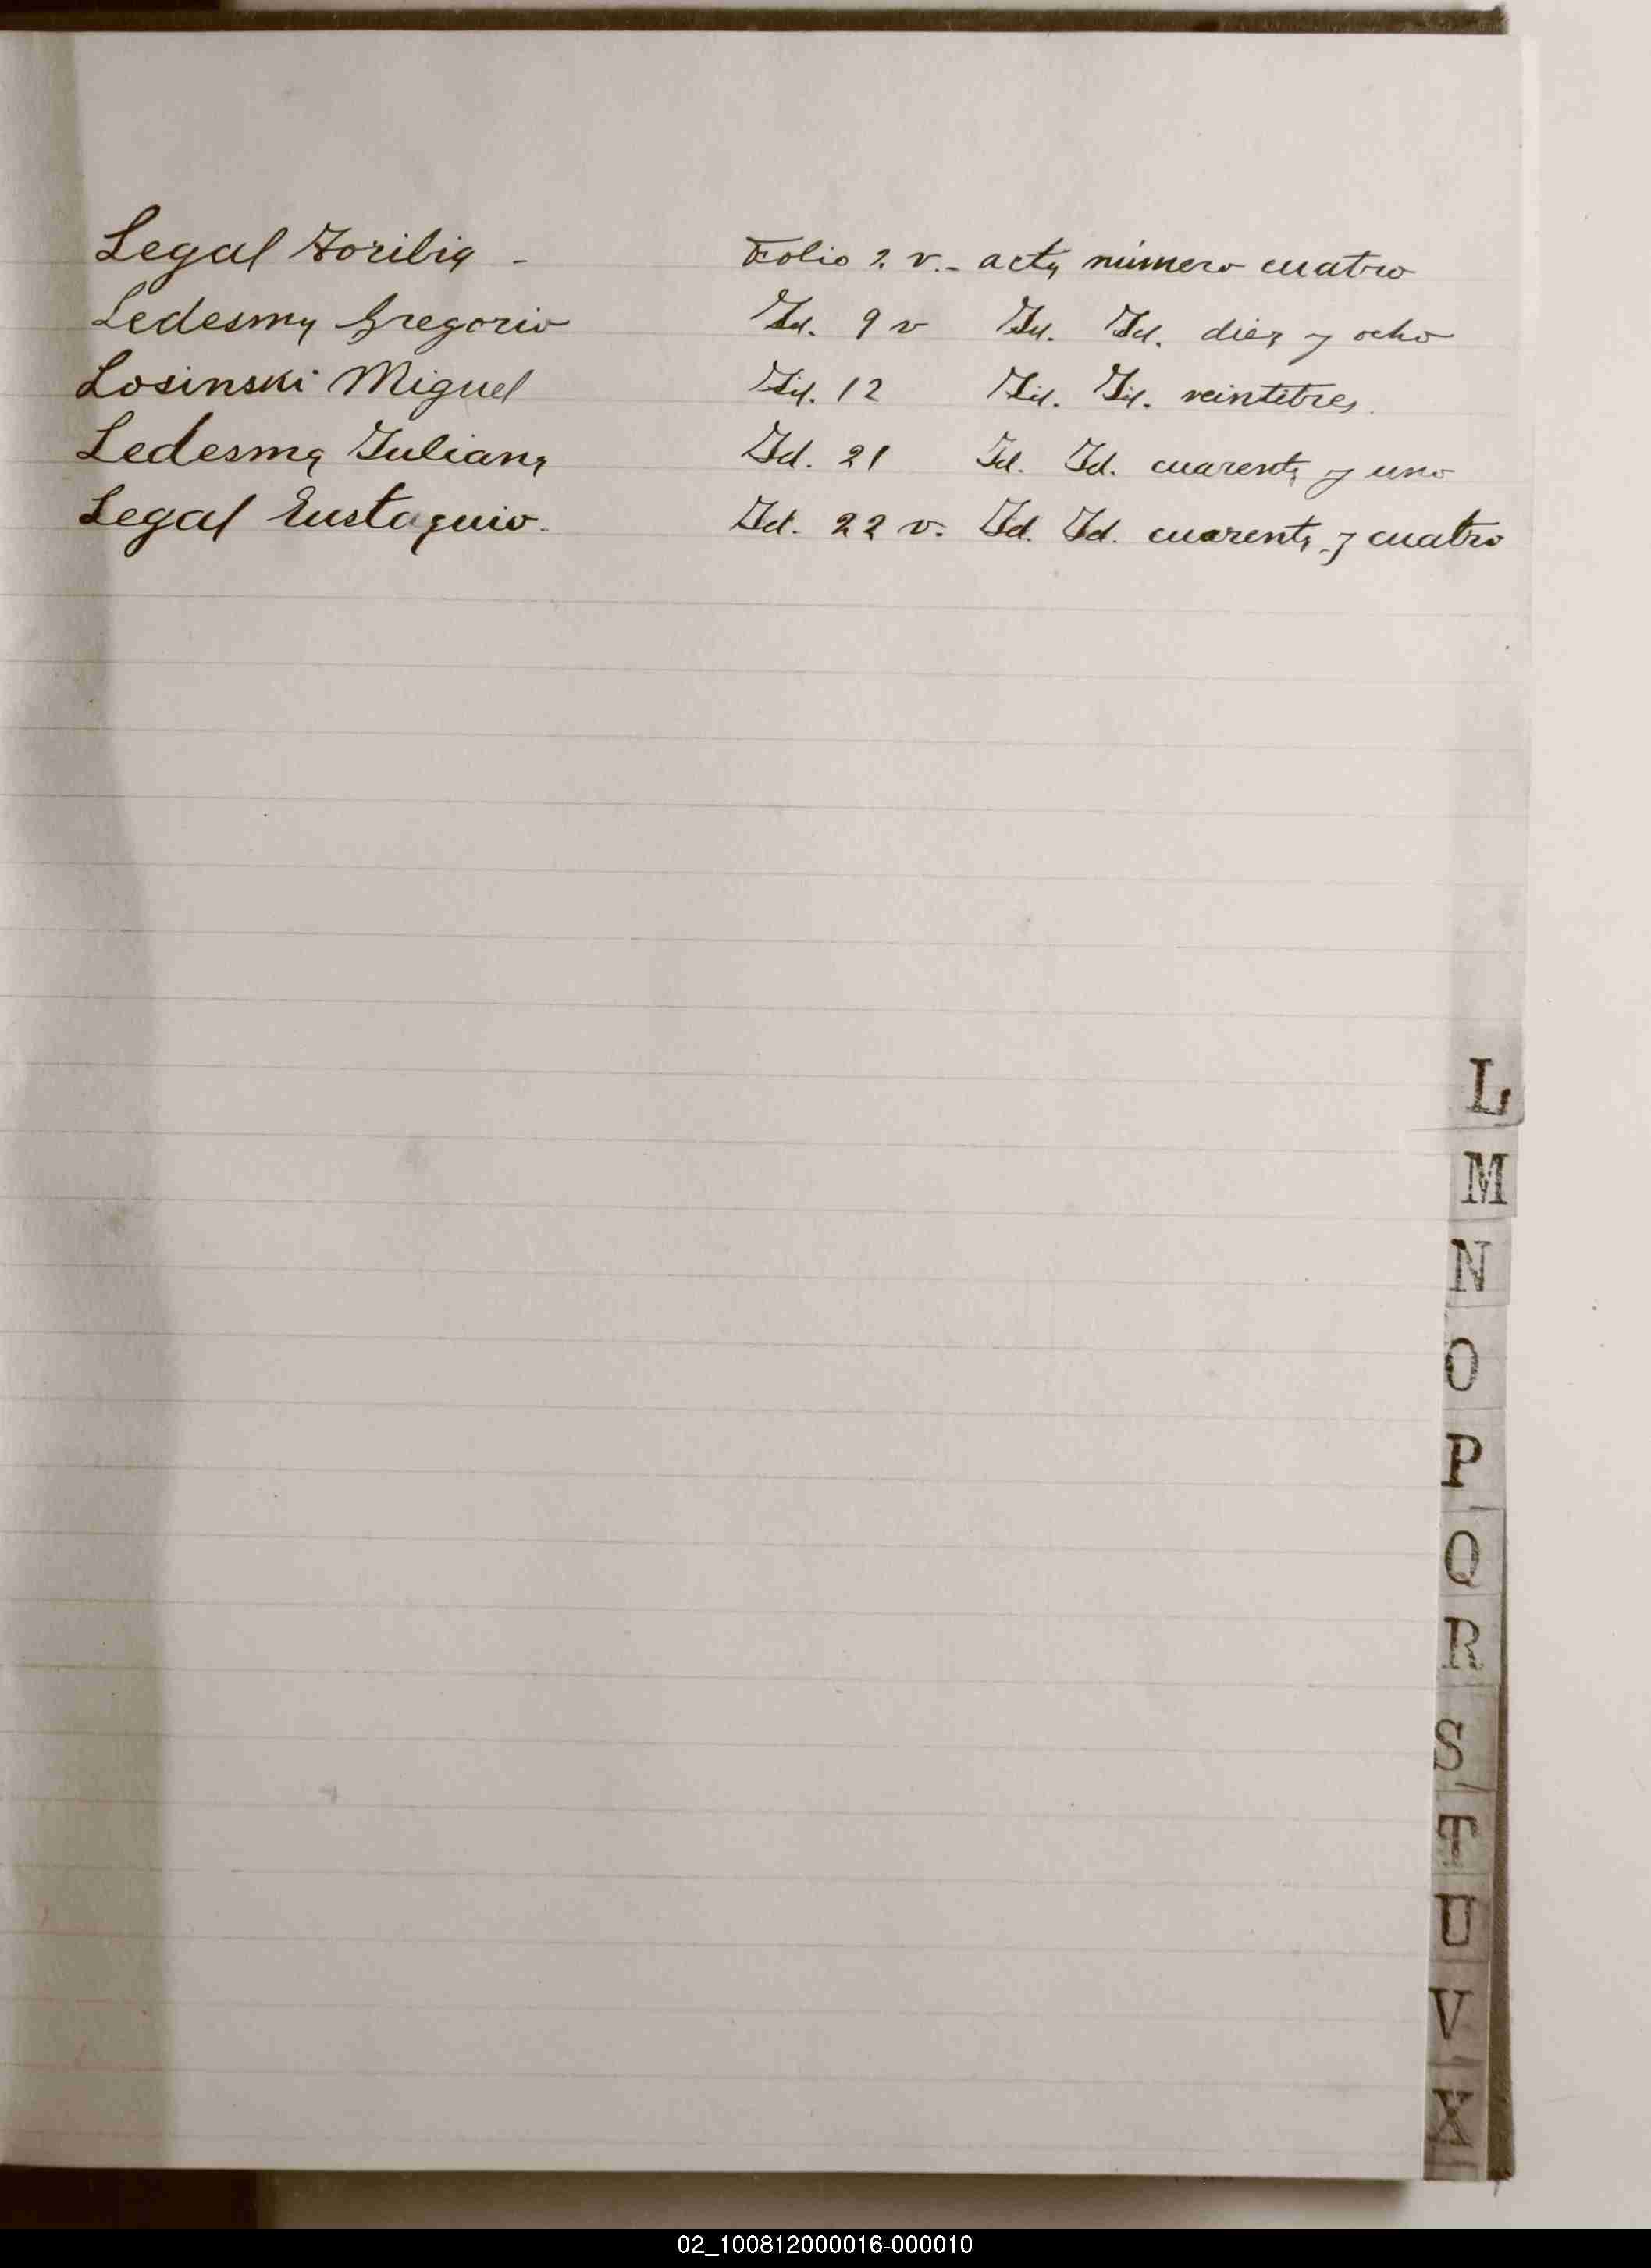 Legal Toribia - Folio 2 v.- acta número cuatro
Ledesma Gregorio Id. 9 v Id. Id. diez y ocho
Losinski Miguel Id. 12 Id. Id. veintitres.
Ledesma Juliana Id. 21 Id. Id. cuarenta y uno
Legal Eustaquio. Id. 22 v. Id. Id. cuarenta y cuatro
L
M
N
O
P
Q
R
S
T
U
V
X
02_100812000016-000010